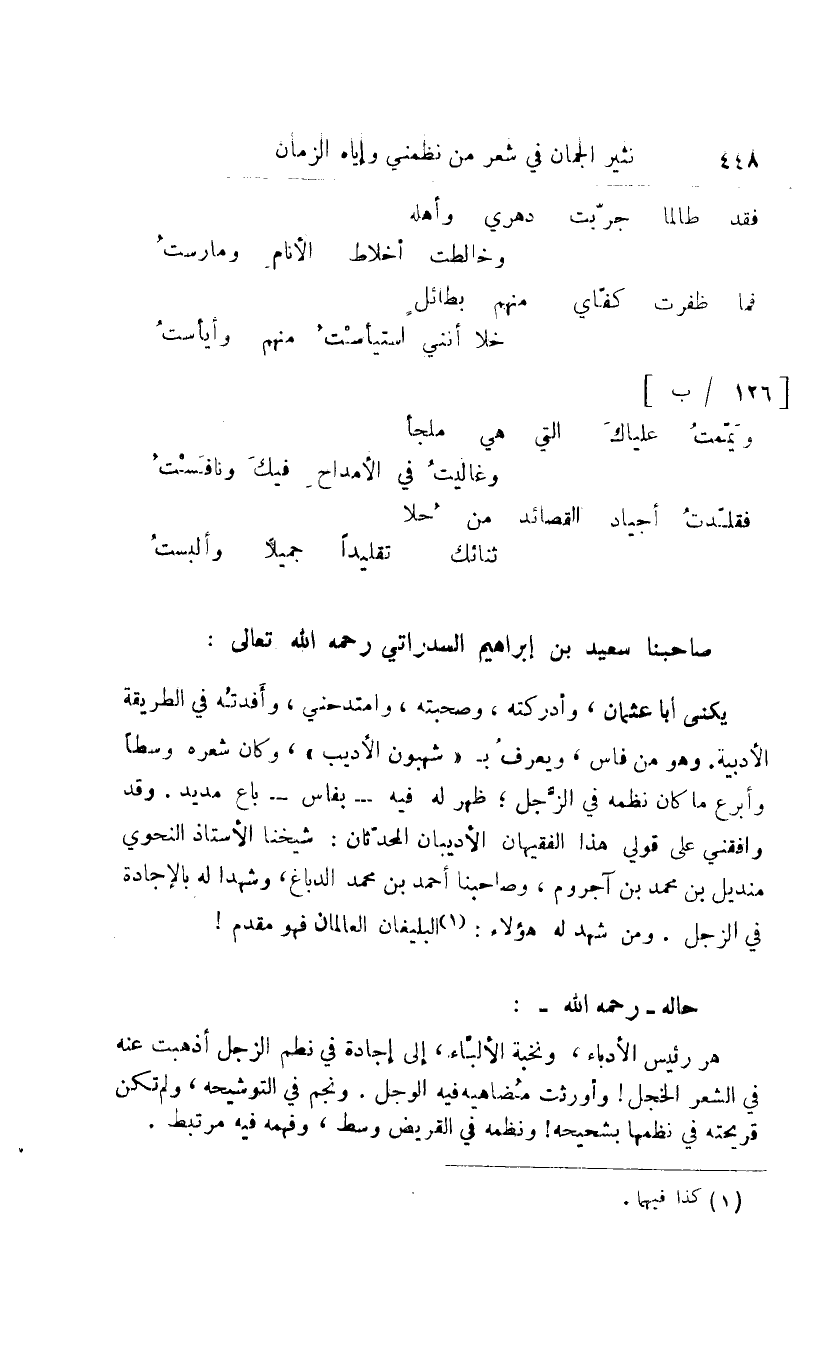 ٤٤٨ نثير الجمان في شعر من نظمني وإياه الزمان
فقد طالما جرّبت دهري وأهله
وخالطت أخلاط الأنامِ ومارستُ
فما ظفرت كفّاي منهم بطائلٍ
خلا أنني استيأسْتُ منهم وأيأستُ
[ ١٢٦ / ب ]
ويَمّمتُ علياكَ التي هي ملجأ
وغاليتُ في الأمداحِ فيكَ ونافَسْتُ
فقلّدتُ أجياد القصائد من حُلا
ثنائك تقليداً جميلاً وألبستُ
صاحبنا سعيد بن إبراهيم السدراتي رحمه الله تعالى :
يكنى أبا عثمان ، وأدركته ، وصحبته ، وامتدحني ، وأفدتُه في الطريقة
الأدبية. وهو من فاس ، ويعرفُ بـ « شهبون الأديب » ، وكان شعره وسطاً
وأبرع ما كان نظمه في الزَّجل ؛ ظهر له فيه – بفاس – باع مديد . وقد
وافقني على قولي هذا الفقيهان الأديبان المحدّثان : شيخنا الأستاذ النحوي
منديل بن محمد بن آجروم ، وصاحبنا أحمد بن محمد الدباغ، وشهدا له بالإجادة
في الزجل . ومن شهد له هؤلاء : (١)البليفان العالمان فهو مقدم !
حاله ـ رحمه الله ـ :
هر رئيس الأدباء ، ونخبة الألبّاء ، إلى إجادة في نطم الزجل أذهبت عنه
في الشعر الخجل! وأورثت مُضاهيه فيه الوجل . ونجم في التوشيحه ، ولم تكن
قريحته في نظمها بشحيحه! ونظمه في القريض وسط ، وفهمه فيه مرتبط .
(١) كذا فيهما .